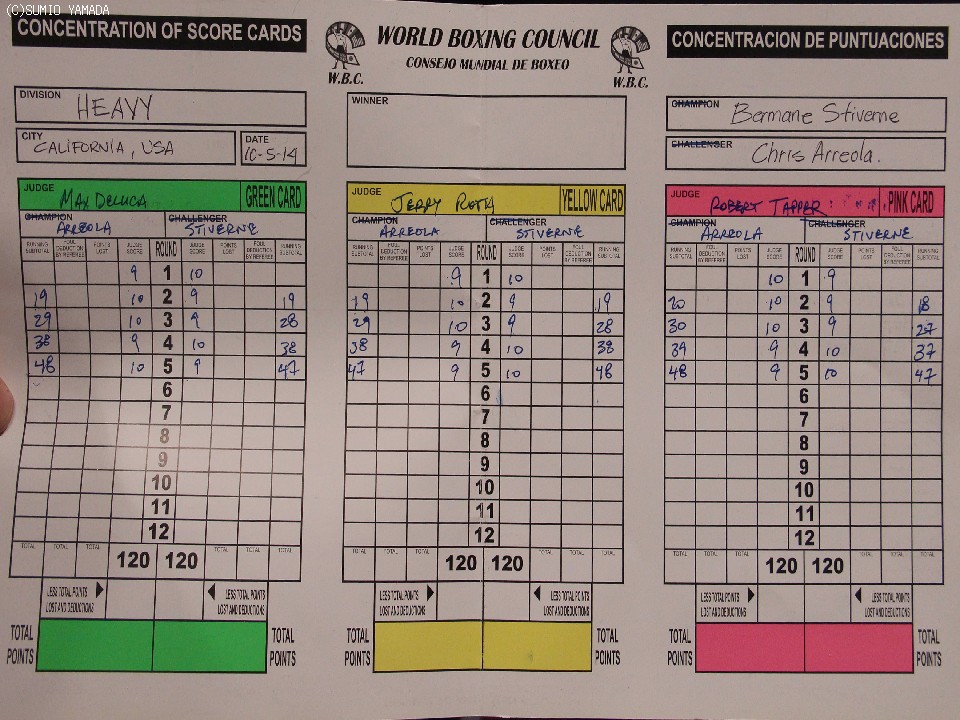 (C)SUMIO YAMADA
CONCENTRATION OF SCORE CARDS
WORLD BOXING COUNCIL
CONSEJO MUNDIAL DE BOXEO
W.B.C.
W.B.C.
CONCENTRACION DE PUNTUACIONES
DIVISION HEAVY
CITY CALIFORNIA, USA
DATE 10-5-14
WINNER
CHAMPION Bermane Stiverne
CHALLENGER Chris Arreola.
JUDGE MAX DELUCA GREEN CARD
CHAMPION ARREOLA CHALLENGER STIVERNE
RUNNING SUBTOTAL FOUL DEDUCTION BY REFEREE POINTS LOST JUDGE SCORE ROUND JUDGE SCORE POINTS LOST FOUL DEDUCTION BY REFEREE RUNNING SUBTOTAL
9 1 10
19 10 2 9 19
29 10 3 9 28
38 9 4 10 38
48 10 5 9 47
6
7
8
9
10
11
12
TOTAL TOTAL TOTAL 120 120 TOTAL TOTAL TOTAL
LESS TOTAL POINTS LOST AND DEDUCTIONS LESS TOTAL POINTS LOST AND DEDUCTIONS
TOTAL POINTS TOTAL POINTS
JUDGE JERRY ROTH YELLOW CARD
CHAMPION ARREOLA CHALLENGER STIVERNE
RUNNING SUBTOTAL FOUL DEDUCTION BY REFEREE POINTS LOST JUDGE SCORE ROUND JUDGE SCORE POINTS LOST FOUL DEDUCTION BY REFEREE RUNNING SUBTOTAL
9 1 10
19 10 2 9 19
29 10 3 9 28
38 9 4 10 38
47 9 5 10 48
6
7
8
9
10
11
12
TOTAL TOTAL TOTAL 120 120 TOTAL TOTAL TOTAL
LESS TOTAL POINTS LOST AND DEDUCTIONS LESS TOTAL POINTS LOST AND DEDUCTIONS
TOTAL POINTS TOTAL POINTS
JUDGE ROBERT TAPPER PINK CARD
CHAMPION ARREOLA CHALLENGER STIVERNE
RUNNING SUBTOTAL FOUL DEDUCTION BY REFEREE POINTS LOST JUDGE SCORE ROUND JUDGE SCORE POINTS LOST FOUL DEDUCTION BY REFEREE RUNNING SUBTOTAL
10 1 9
20 10 2 9 18
30 10 3 9 27
39 9 4 10 37
48 9 5 10 47
6
7
8
9
10
11
12
TOTAL TOTAL TOTAL 120 120 TOTAL TOTAL TOTAL
LESS TOTAL POINTS LOST AND DEDUCTIONS LESS TOTAL POINTS LOST AND DEDUCTIONS
TOTAL POINTS TOTAL POINTS